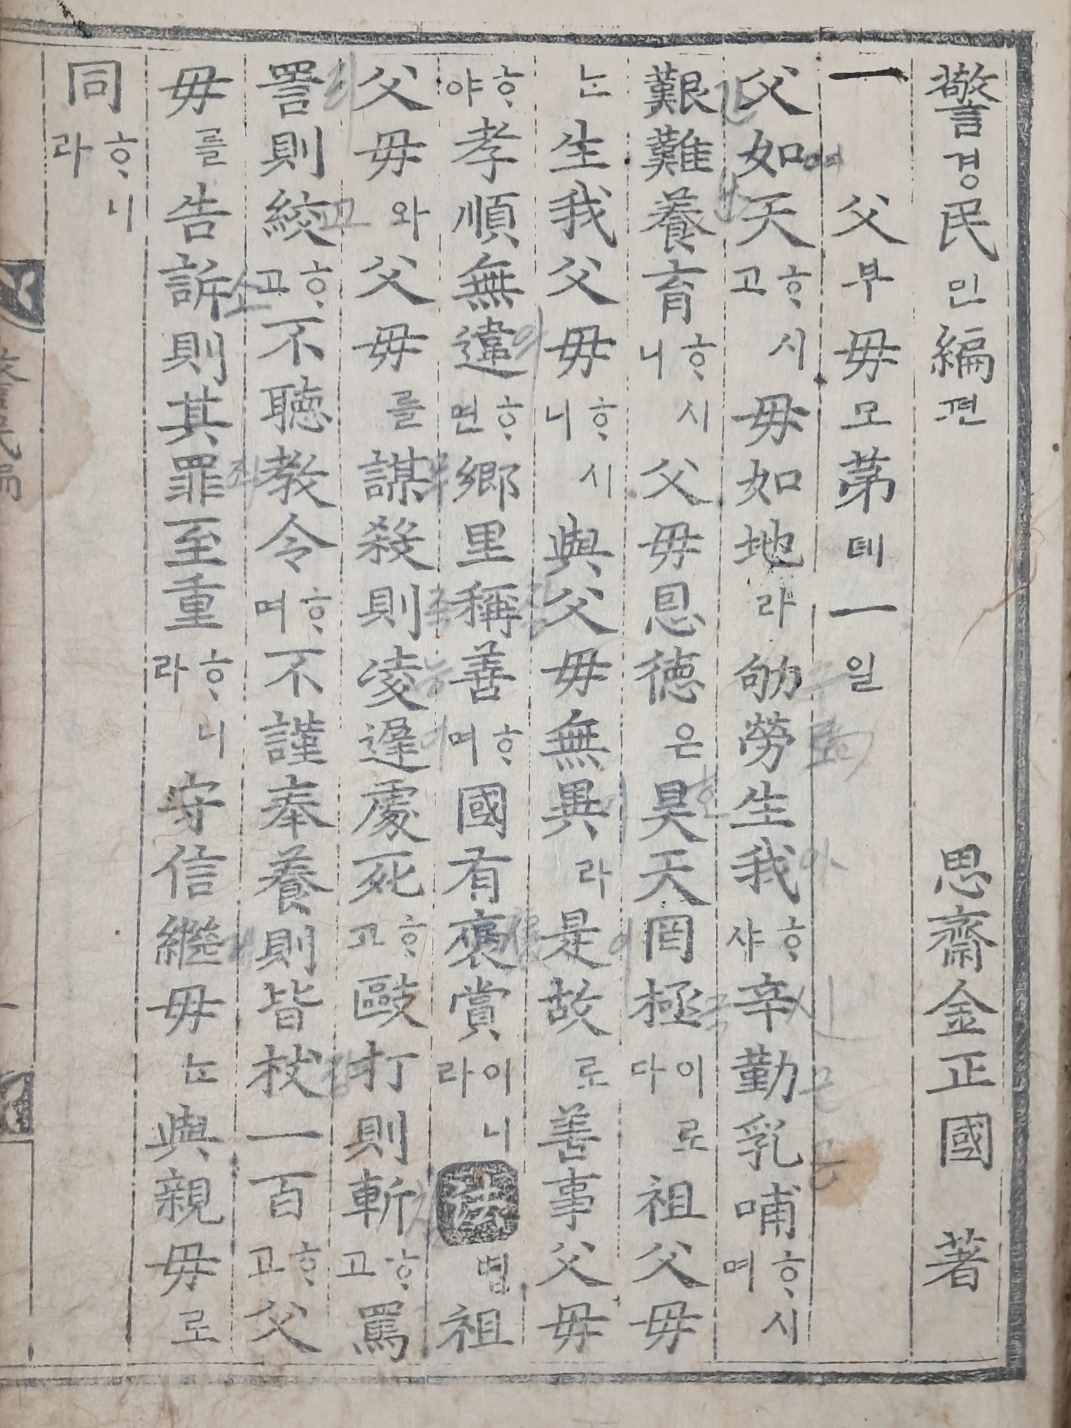 警경民민編편 思齋金正國 著
一 父부母모第뎨一일
父如天ᄒᆞ시고母如地라劬勞生我ᄒᆞ샤辛勤乳哺ᄒᆞ시며
艱難養育ᄒᆞ시니父母恩德은昊天罔極이로다祖父母
ᄂᆞᆫ生我父母ᄒᆞ시니與父母無異라是故로善事父母
ᄒᆞ야孝順無違ᄒᆞ면鄕里稱善ᄒᆞ며國有褒賞이니라法법祖
父母와父母를謀殺則凌遲處死ᄒᆞ고毆打則斬ᄒᆞ고罵
詈則絞ᄒᆞ고不聽敎令ᄒᆞ며不謹奉養則皆杖一百ᄒᆞ고父
母를告訴則其罪至重ᄒᆞ니라守信繼母ᄂᆞᆫ與親母로
同ᄒᆞ니라